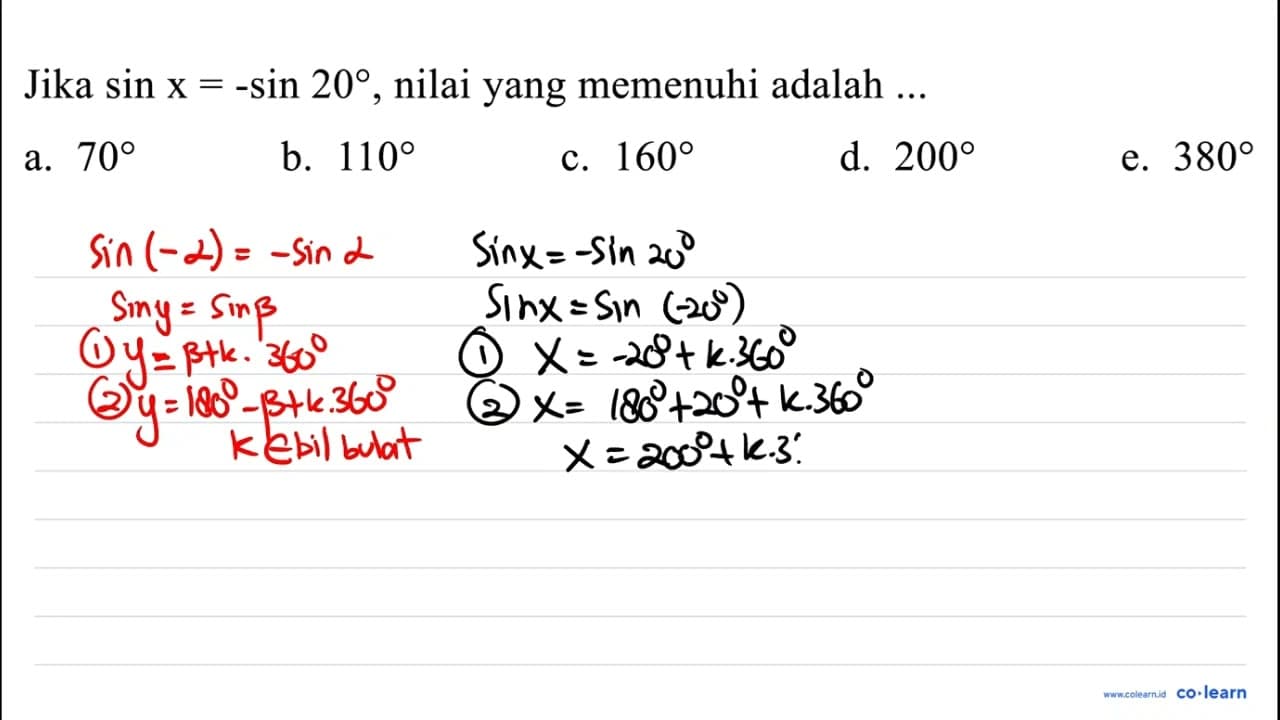 Jika sin x = -sin 20°, nilai yang memenuhi adalah ...
a. 70° b. 110° c. 160° d. 200° e. 380°
sin (-α) = -sin α
sin y = sin β
① y = β + k. 360°
② y = 180° - β + k.360°
k ∈ bil bulat
sin x = -sin 20°
sin x = sin (-20°)
① x = -20° + k.360°
② x = 180° + 20° + k.360°
x = 200° + k.3
www.colearn.id co·learn